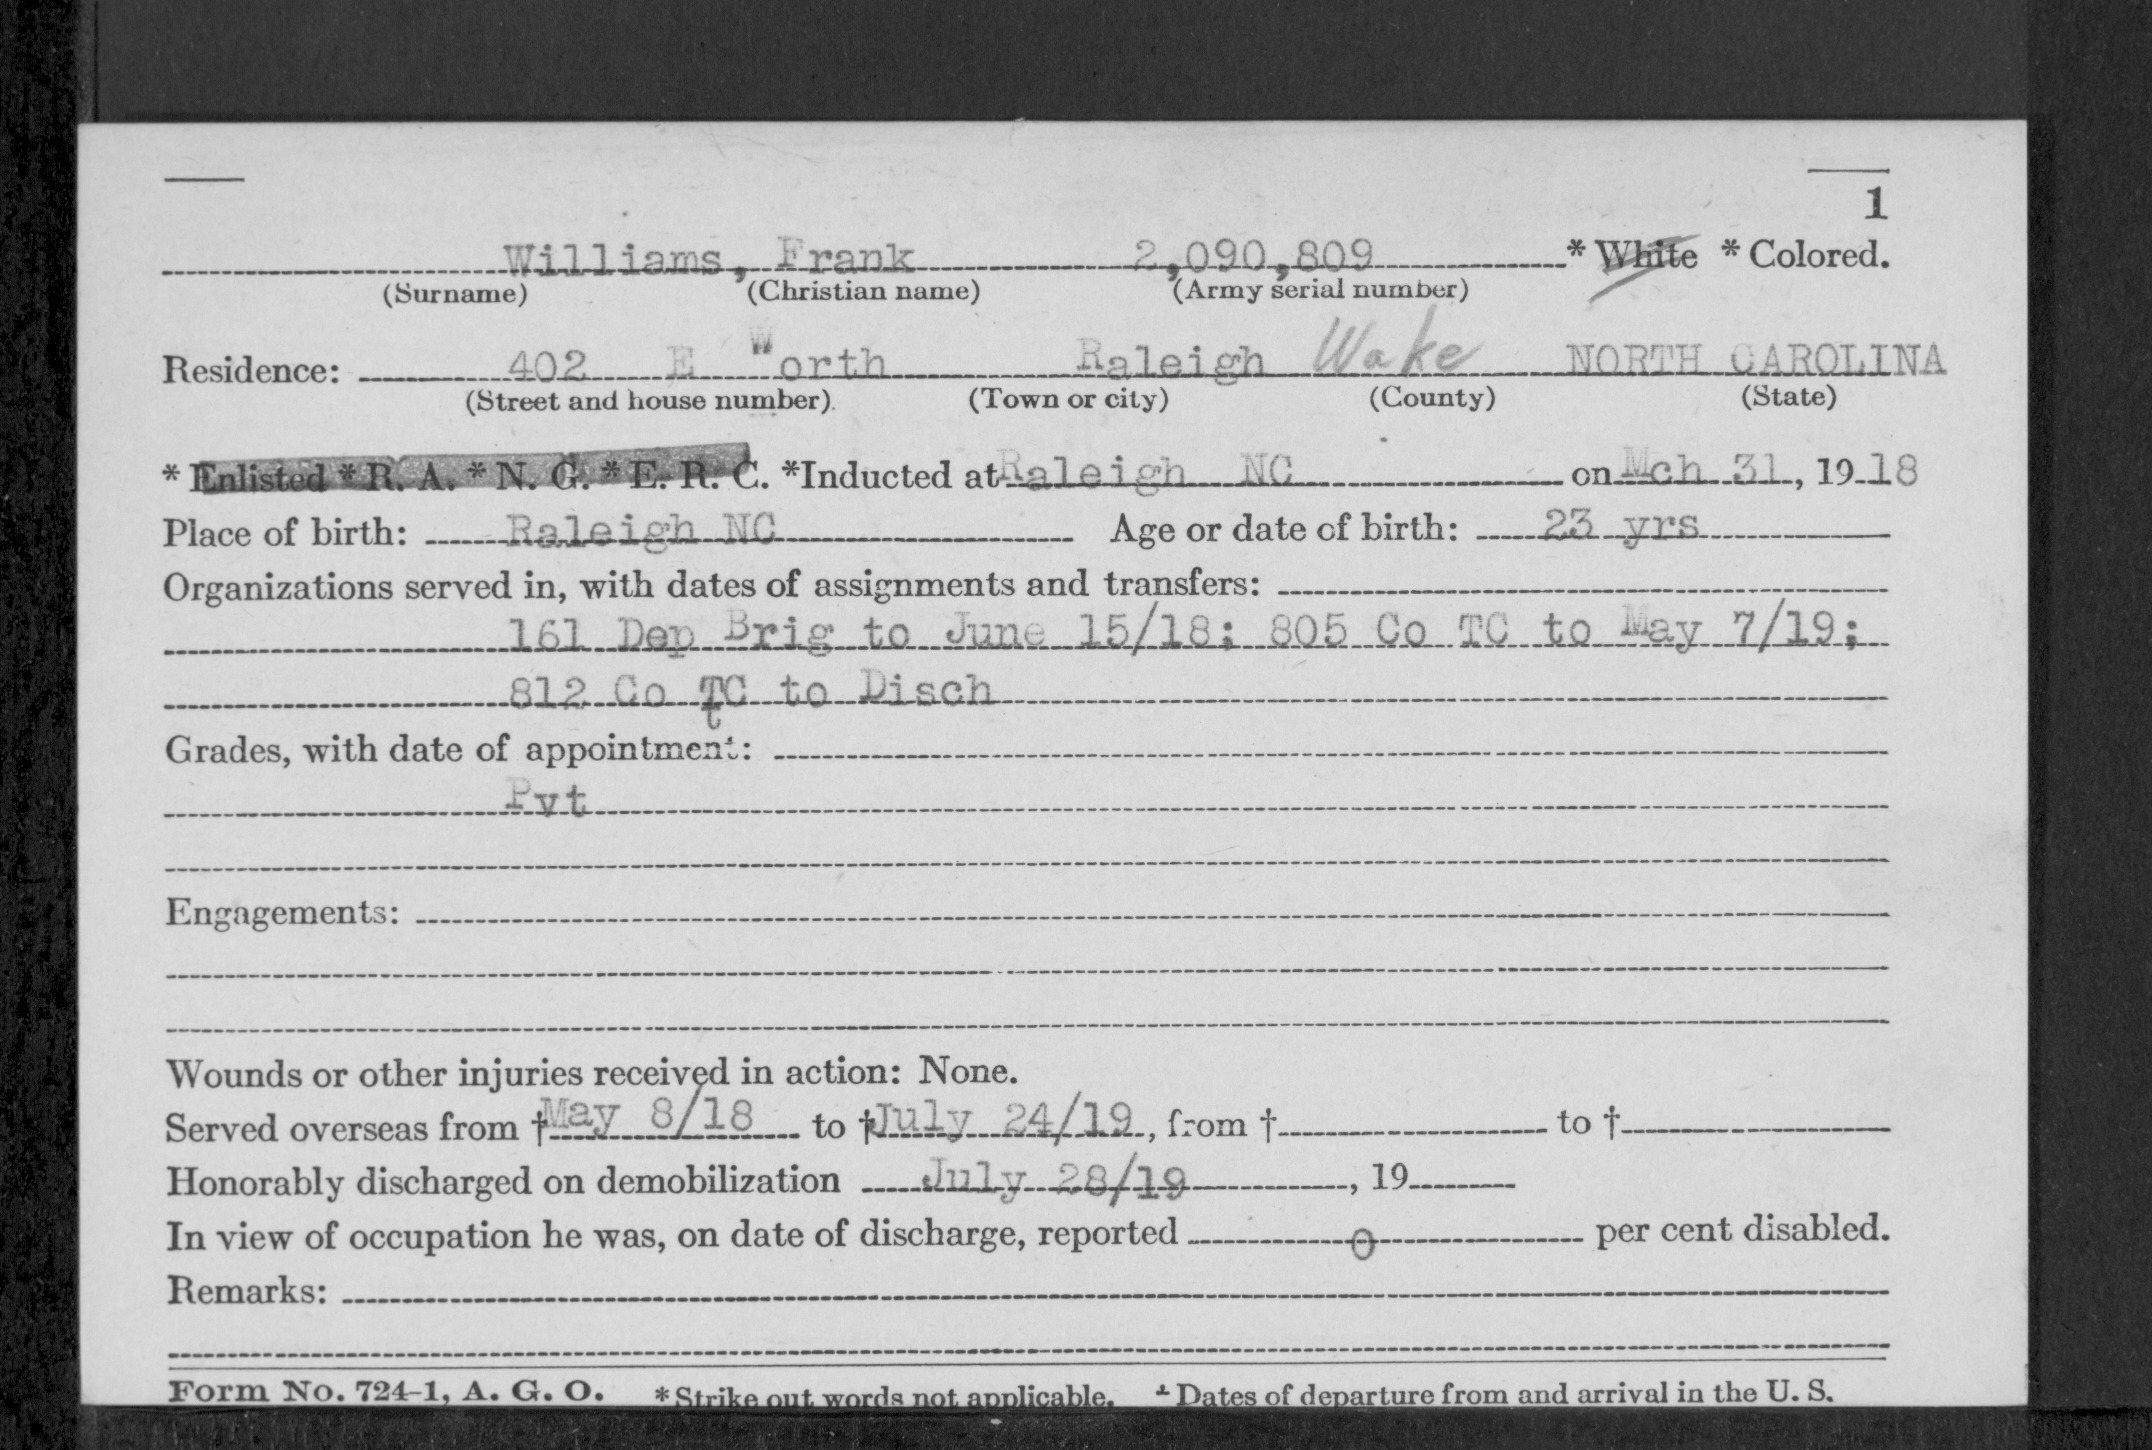 1
Williams, Frank 2,090,809 * White * Colored.
(Surname) (Christian name) (Army serial number)
Residence: 402 E Worth Raleigh Wake NORTH CAROLINA
(Street and house number) (Town or city) (County) (State)
* Enlisted * R. A. * N. G. * E. R. C. *Inducted at Raleigh NC on Mch 31, 19 18
Place of birth: Raleigh NC Age or date of birth: 23 yrs
Organizations served in, with dates of assignments and transfers:
161 Dep Brig to June 15/18; 805 Co TC to May 7/19;
812 Co TC to Disch
t
Grades, with date of appointment:
Pvt
Engagements:
Wounds or other injuries received in action: None.
Served overseas from † May 8/18 to † July 24/19, from † to †
Honorably discharged on demobilization July 28/19, 19
In view of occupation he was, on date of discharge, reported 0 per cent disabled.
Remarks:
Form No. 724-1, A. G. O. * Strike out words not applicable. † Dates of departure from and arrival in the U. S.